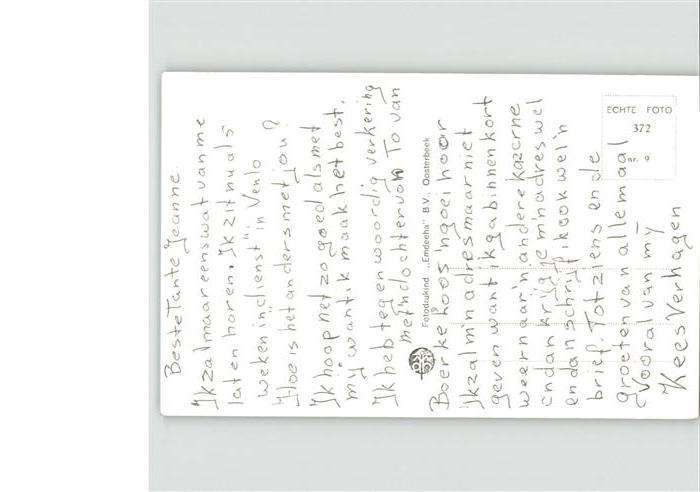 Beste Tante Jeanne.
Ik zal maar eens wat van me
laten horen. Ik zit nu als
weken in dienst" in Venlo
Hoe is het anders met jou?
Ik hoop net zo goed als met
mij want ik maak het best.
Ik heb tegenwoordig verkering
met 'n dochter von To van
Fotodrukind „Emdeeha" B.V., Oosterbeek
Boerke Koos 'n goei hoor
Ik zal m'n adres maar niet
geven want ik ga binnenkort
weer naar 'n andere kazerne
en dan krijg je m'n adres wel
en dan schrijf ik ook wel 'n
brief. Tot ziens en de
groeten van allemaal
Vooral van mij
Kees Verhagen
ECHTE FOTO
372
nr. 9